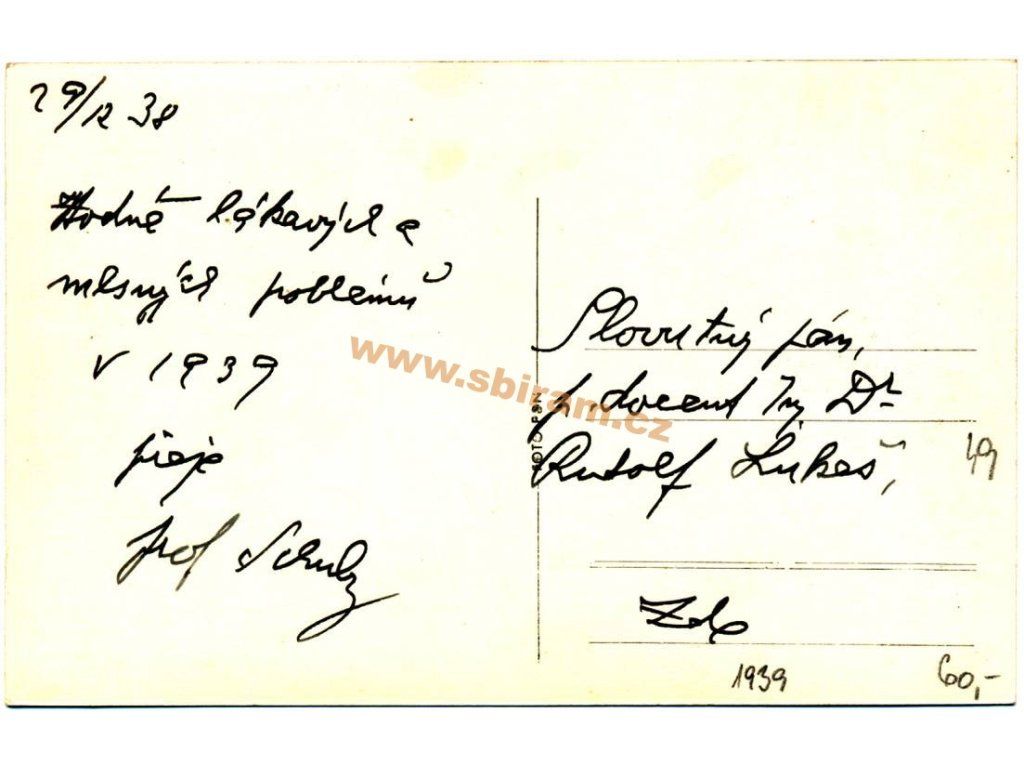 29/12 38
Hodně lákavých a
mlsných problémů
v 1939
přeje
prof Schulz
www.sbiram.cz
FOTO-FON
Slovutný pán,
p. docent Ing Dr
Rudolf Lukeš,
49
Zde
1939
60,-